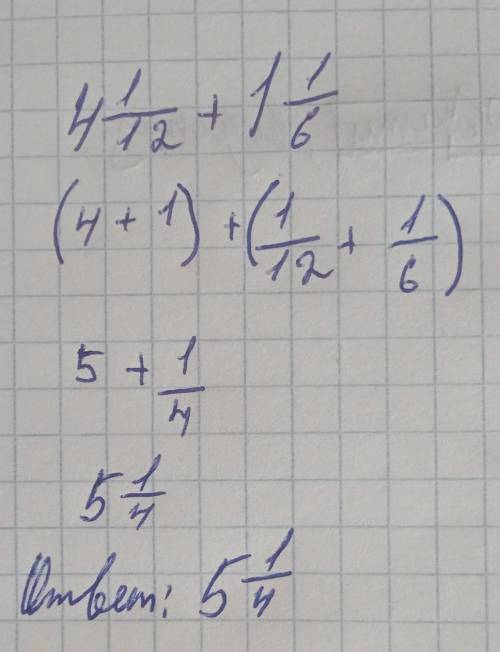 4 1/12 + 1 1/6
(4 + 1) + (1/12 + 1/6)
5 + 1/4
5 1/4
Ответ: 5 1/4